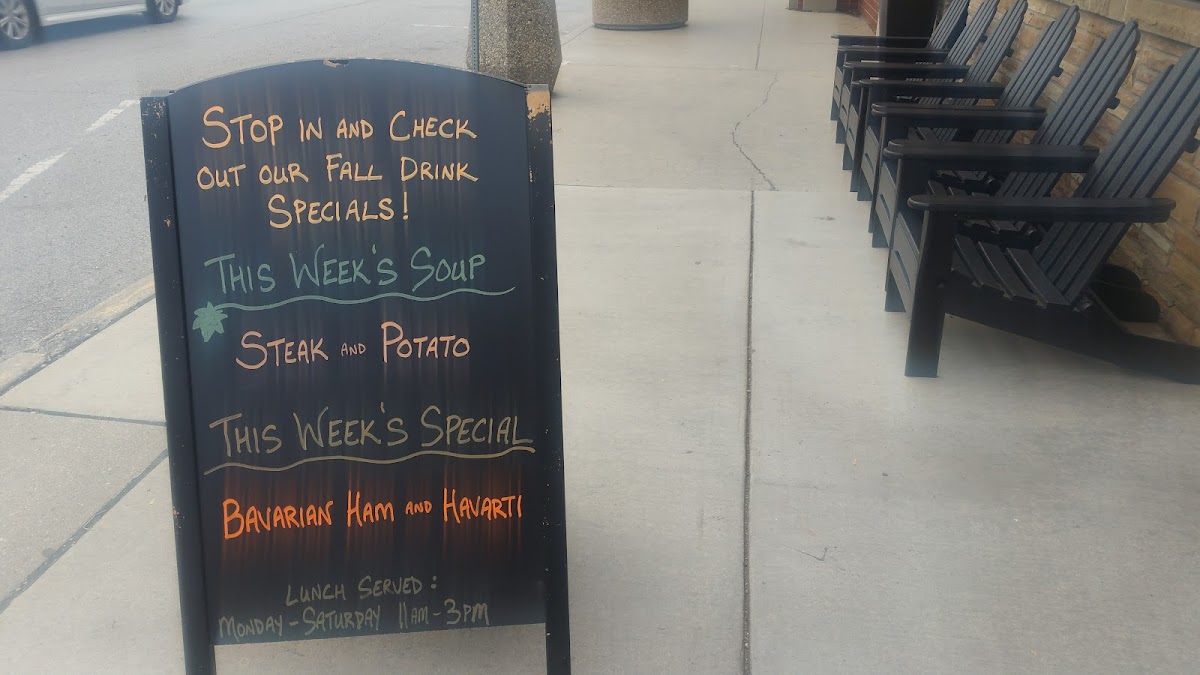 STOP IN AND CHECK
OUT OUR FALL DRINK
SPECIALS!
THIS WEEK'S SOUP
STEAK AND POTATO
THIS WEEK'S SPECIAL
BAVARIAN HAM AND HAVARTI
LUNCH SERVED:
MONDAY-SATURDAY 11AM-3PM